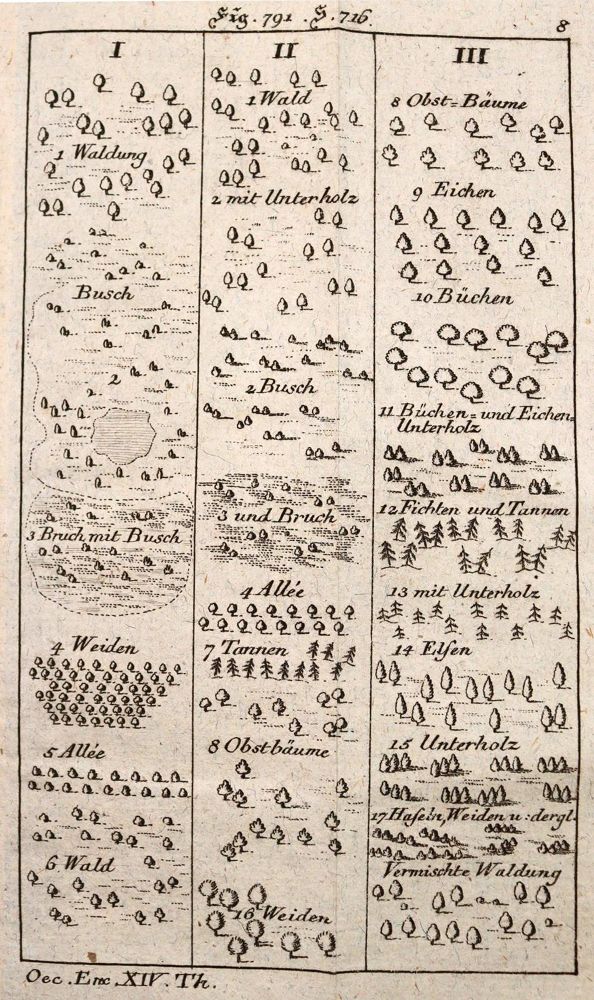 Fig. 791. S. 716.
8
I
1 Waldung
Busch
2
3 Bruch mit Busch
4 Weiden
5 Allée
6 Wald
II
1 Wald
2 mit Unterholz
2 Busch
3 und Bruch
4 Allée
7 Tannen
8 Obstbäume
16 Weiden
III
8 Obst=Bäume
9 Eichen
10 Büchen
11 Büchen=und Eichen=
Unterholz
12 Fichten und Tannen
13 mit Unterholz
14 Elsen
15 Unterholz
17 Haseln, Weiden u: dergl.
Vermischte Waldung
Oec. Enc. XIV. Th.